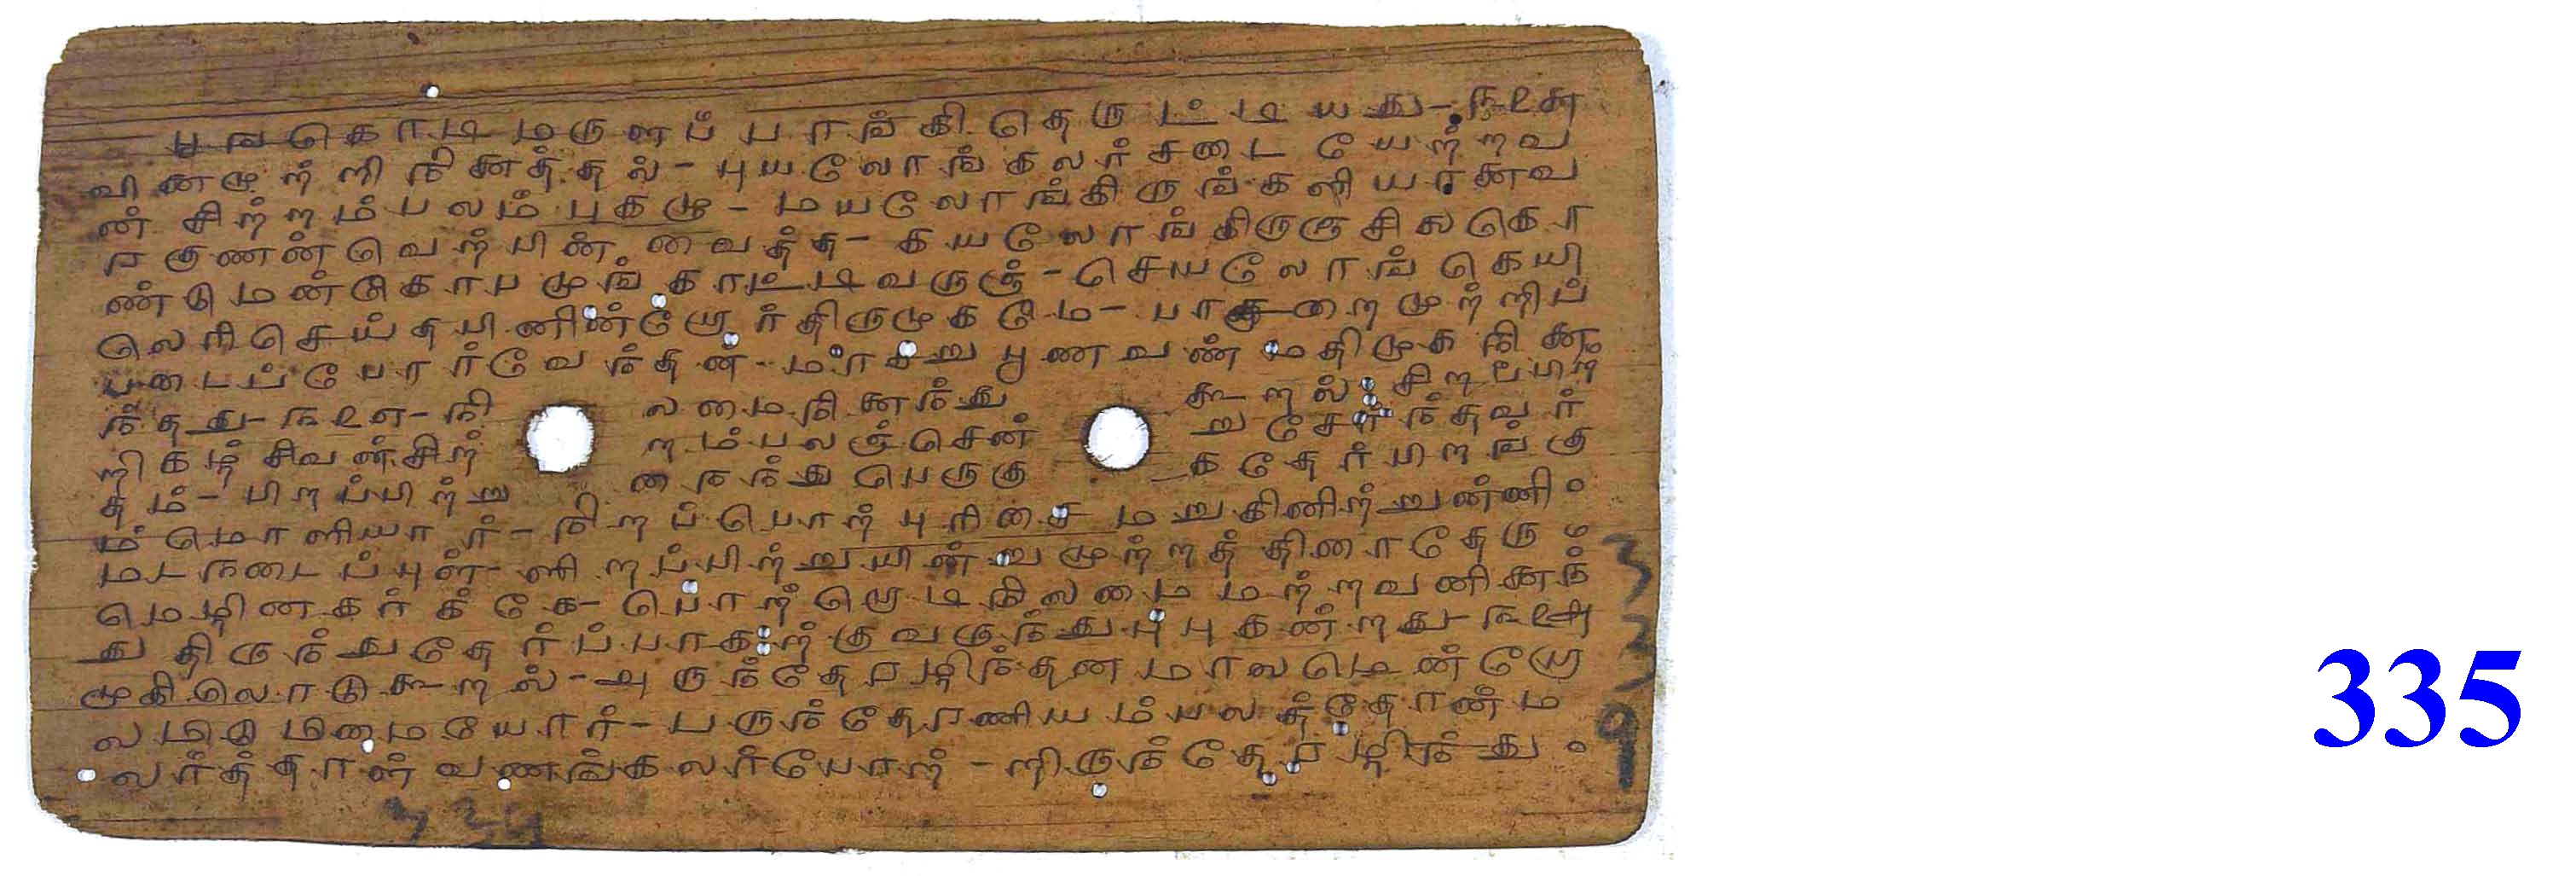 பூங்கொடி மருளப் பாங்கி தெருட்டியது - ௩௨௬
வினைமுற்றி நினைத்தல் - புயலோங்கலர்சடை யேற்றவ
ன் சிற்றம்பலம் புகழு - மயலோங்கிருங்களியானைவ
ரகுணன் வெற்பின் வைத்த - கயலோங்கிருஞ்சிலைகொ
ண்டுமன்கோபமுங் காட்டிவருஞ் - செயலோங்கெயி
லெரிசெய்தபினின்றோர் திருமுகமே - பாசறைமுற்றிப்
படைப்போர்வேந்தன் - மாசறு பூண வண் மதிமுக நினை
ந்தது - ௩௨௭ - நிலைமைநினைந்து கூறல் - சிறப்பிற்
றிகழ் சிவன்சிற்றம்பலஞ்சென்று சேர்ந்தவர்
தம் - பிறப்பிற்று னைந்து பெருகுக தேர்பிறங்கு
ம் மொளியார் - நிறப்பொற் புரிசை மறுகினிற்றுன்னி
மடநடைப்புள் - ளிறப்பிற்றுயின்றுமுற்றத் திரைதேரு
மெழினகர்க்கே - பொற்றொடி நிலைமை மற்றவனினைந்
து திருந்துதேர்ப்பாகற்கு வருந்துபு புகன்றது - ௩௨௮
முகிலொடுகூறல் - அருந்தேரழிந்தன மாலமென்றோ
லமிடு மிமையோர் - மருந்தேரணியம்பலத்தோன்ம
லர்த்தாள் வணங்கலர்போற் - றிருந்தேரழிந்து
335
335